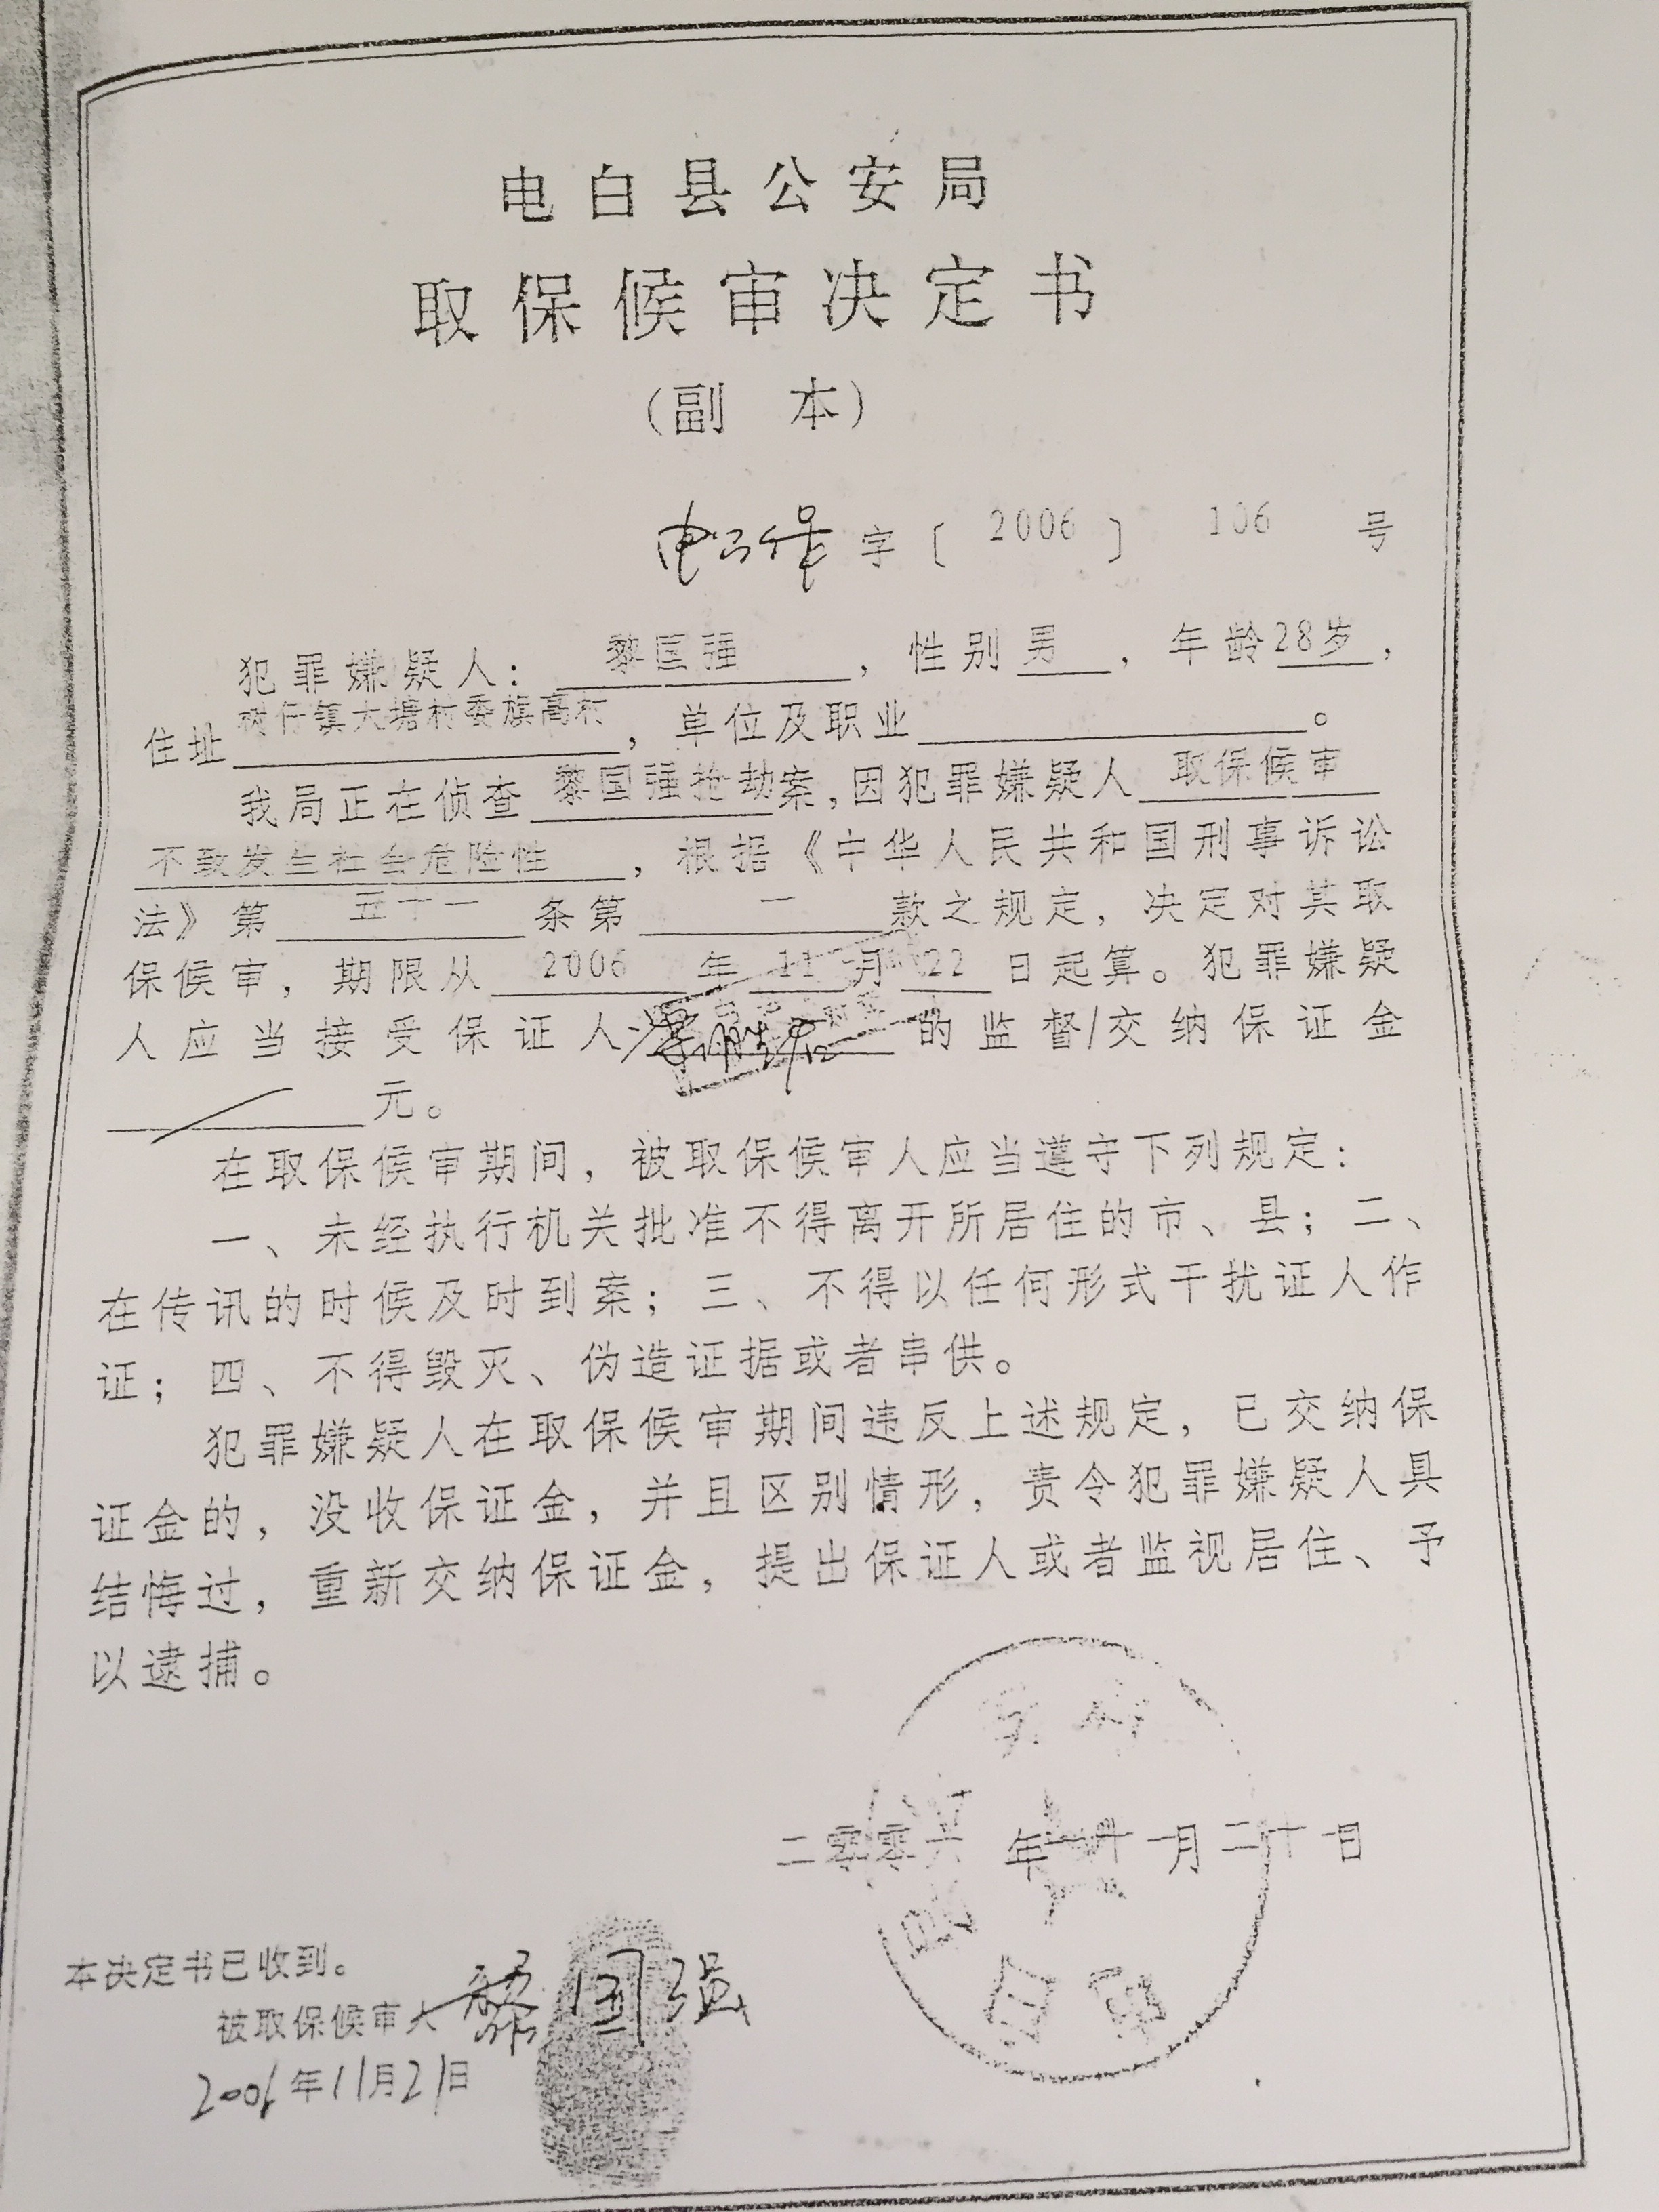 电白县公安局
取保候审决定书
（副 本）
字〔 2006 〕 106 号
犯罪嫌疑人： 黎国强 ，性别 男 ，年龄28岁，
住址 树仔镇大塘村委旗高村 ，单位及职业 。
我局正在侦查 黎国强抢劫案，因犯罪嫌疑人 取保候审
不致发生社会危险性 ，根据《中华人民共和国刑事诉讼
法》第 五十一 条第 一 款之规定，决定对其取
保候审，期限从 2006 年 11 月 22 日起算。犯罪嫌疑
人应当接受保证人 的监督/交纳保证金
元。
在取保候审期间，被取保候审人应当遵守下列规定：
一、未经执行机关批准不得离开所居住的市、县；二、
在传讯的时候及时到案；三、不得以任何形式干扰证人作
证；四、不得毁灭、伪造证据或者串供。
犯罪嫌疑人在取保候审期间违反上述规定，已交纳保
证金的，没收保证金，并且区别情形，责令犯罪嫌疑人具
结悔过，重新交纳保证金，提出保证人或者监视居住、予
以逮捕。
二零零六 年十一月二十一日
本决定书已收到。
被取保候审人 黎国强
2006年11月21日